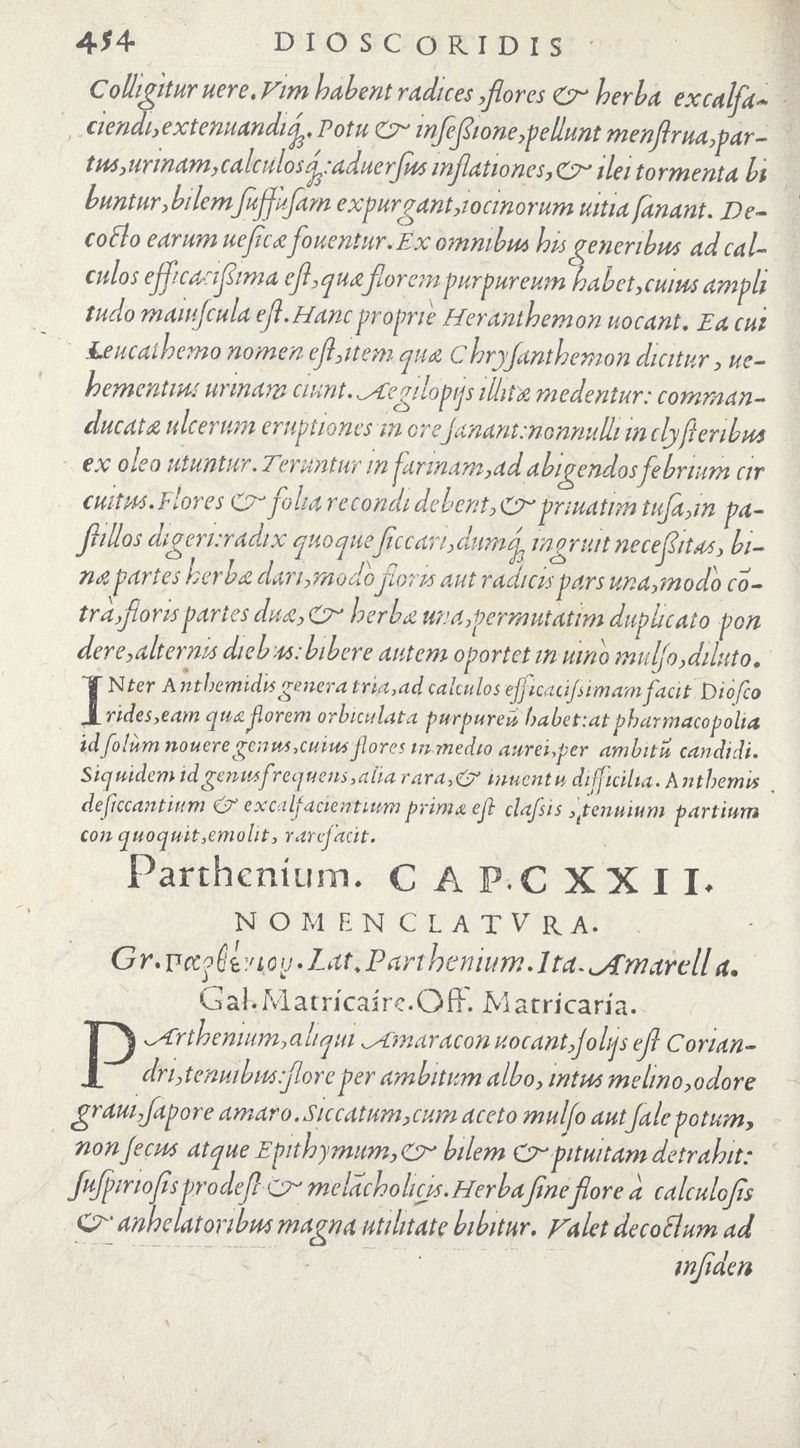 454 DIOSCORIDIS
Colligitur uere. Vim habent radices, flores & herba excalfa-
ciendi, extenuandiq́;. Potu & inseßione, pellunt menstrua, par-
tus, urinam, calculosq́;: aduersus inflationes, & ilei tormenta bi
buntur, bilem suffusam expurgant, iocinorum uitia sanant. De-
cocto earum uesicæ fouentur. Ex omnibus his generibus ad cal-
culos efficacißima est, quæ florem purpureum habet, cuius ampli
tudo maiuscula est. Hanc proprie Heranthemon uocant. Ea cui
Leucathemo nomen est, item quæ Chrysanthemon dicitur, ue-
hementius urinam ciunt. Aegilopijs illitæ medentur: comman-
ducatæ ulcerum eruptiones in ore sanant: nonnulli in clysteribus
ex oleo utuntur. Teruntur in farinam, ad abigendos febrium cir
cuitus. Flores & folia recondi debent, & priuatim tusa, in pa-
stillos digeri: radix quoque siccari, dumq́; ingruit neceßitas, bi-
næ partes herbæ dari, modo floris aut radicis pars una, modò cō-
trà, floris partes duæ, & herbæ una, permutatim duplicato pon
dere, alternis diebus: bibere autem oportet in uino mulso, diluto.
INter Anthemidis genera tria, ad calculos efficacissimam facit Diosco
rides, eam quæ florem orbiculata purpureū habet: at pharmacopolia
id solùm nouere genus, cuius flores in medio aurei, per ambitū candidi.
Siquidem id genus frequens, alia rara, & inuentu difficilia. Anthemis
desiccantium & excalfacientium primæ est classis, tenuium partium
con quoquit, emolit, rarefacit.
Parthenium. CAP. CXXII.
NOMENCLATVRA.
Gr. Παρθένιον. Lat. Parthenium. Ita. Amarella.
Gal. Matricaire. Off. Matricaria.
PArthenium, aliqui Amaracon uocant, folijs est Corian-
dri, tenuibus: flore per ambitum albo, intus melino, odore
graui, sapore amaro. Siccatum, cum aceto mulso aut sale potum,
non secus atque Epithymum, & bilem & pituitam detrahit:
suspiriosis prodest & melācholicis. Herba sine flore à calculosis
& anhelatoribus magna utilitate bibitur. Valet decoctum ad
insiden